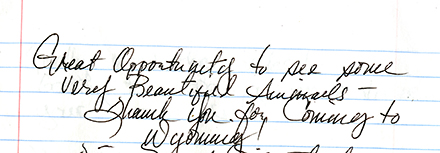 Great Opportunity to see some
very Beautiful Animals –
Thank you for Coming to
Wyoming